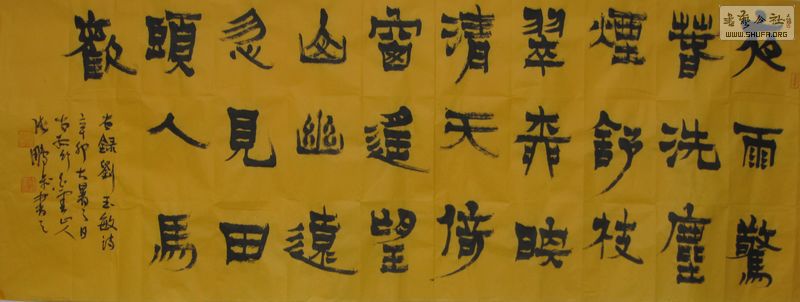 书艺公社
WWW.SHUFA.ORG
夜雨驚
春洗塵
煙舒枝
翠映
清天倚
窗遙望
山幽遠
忽見田
頭人馬
歡
右錄劉玉敏詩
辛卯大暑之日
山人
鵬書之